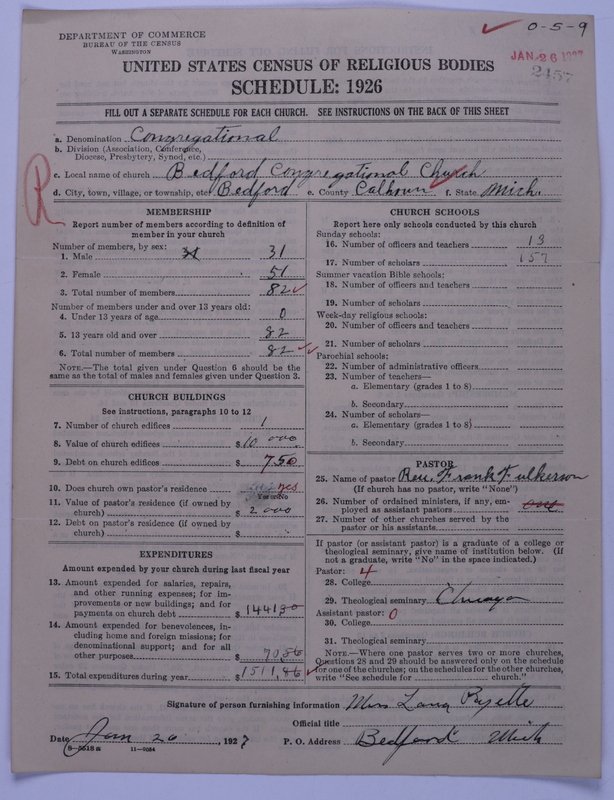 DEPARTMENT OF COMMERCE
BUREAU OF THE CENSUS
WASHINGTON
0-5-9
JAN 26 1927
2457
UNITED STATES CENSUS OF RELIGIOUS BODIES
SCHEDULE: 1926
FILL OUT A SEPARATE SCHEDULE FOR EACH CHURCH. SEE INSTRUCTIONS ON THE BACK OF THIS SHEET
a. Denomination Congregational
b. Division (Association, Conference, Diocese, Presbytery, Synod, etc.)
c. Local name of church Bedford Congregational Church
d. City, town, village, or township, etc. Bedford e. County Calhoun f. State Mich.
R
MEMBERSHIP
Report number of members according to definition of member in your church
Number of members, by sex:
1. Male 31 31
2. Female 51
3. Total number of members 82
Number of members under and over 13 years old:
4. Under 13 years of age 0
5. 13 years old and over 82
6. Total number of members 82
NOTE.—The total given under Question 6 should be the same as the total of males and females given under Question 3.
CHURCH BUILDINGS
See instructions, paragraphs 10 to 12
7. Number of church edifices 1
8. Value of church edifices $10 000
9. Debt on church edifices $ 750
10. Does church own pastor's residence yes
Yes or No
11. Value of pastor's residence (if owned by church) $ 2 000
12. Debt on pastor's residence (if owned by church) $
EXPENDITURES
Amount expended by your church during last fiscal year
13. Amount expended for salaries, repairs, and other running expenses; for improvements or new buildings; and for payments on church debt $ 1441 80
14. Amount expended for benevolences, including home and foreign missions; for denominational support; and for all other purposes $
15. Total expenditures during year $1511.46
CHURCH SCHOOLS
Report here only schools conducted by this church
Sunday schools:
16. Number of officers and teachers 13
17. Number of scholars 157
Summer vacation Bible schools:
18. Number of officers and teachers
19. Number of scholars
Week-day religious schools:
20. Number of officers and teachers
21. Number of scholars
Parochial schools:
22. Number of administrative officers
23. Number of teachers—
a. Elementary (grades 1 to 8)
b. Secondary
24. Number of scholars—
a. Elementary (grades 1 to 8)
b. Secondary
PASTOR
25. Name of pastor Rev. Frank Fulkerson
(If church has no pastor, write "None")
26. Number of ordained ministers, if any, employed as assistant pastors one
27. Number of other churches served by the pastor or his assistants
If pastor (or assistant pastor) is a graduate of a college or theological seminary, give name of institution below. (If not a graduate, write "No" in the space indicated.)
Pastor: 4
28. College
29. Theological seminary Chicago
Assistant pastor: 0
30. College
31. Theological seminary
NOTE.—Where one pastor serves two or more churches, Questions 28 and 29 should be answered only on the schedule for one of the churches; on the schedules for the other churches, write "See schedule for church."
Signature of person furnishing information
Official title
Date Jan 20, 1927 P. O. Address Bedford Mich
8-5518a 11-0084